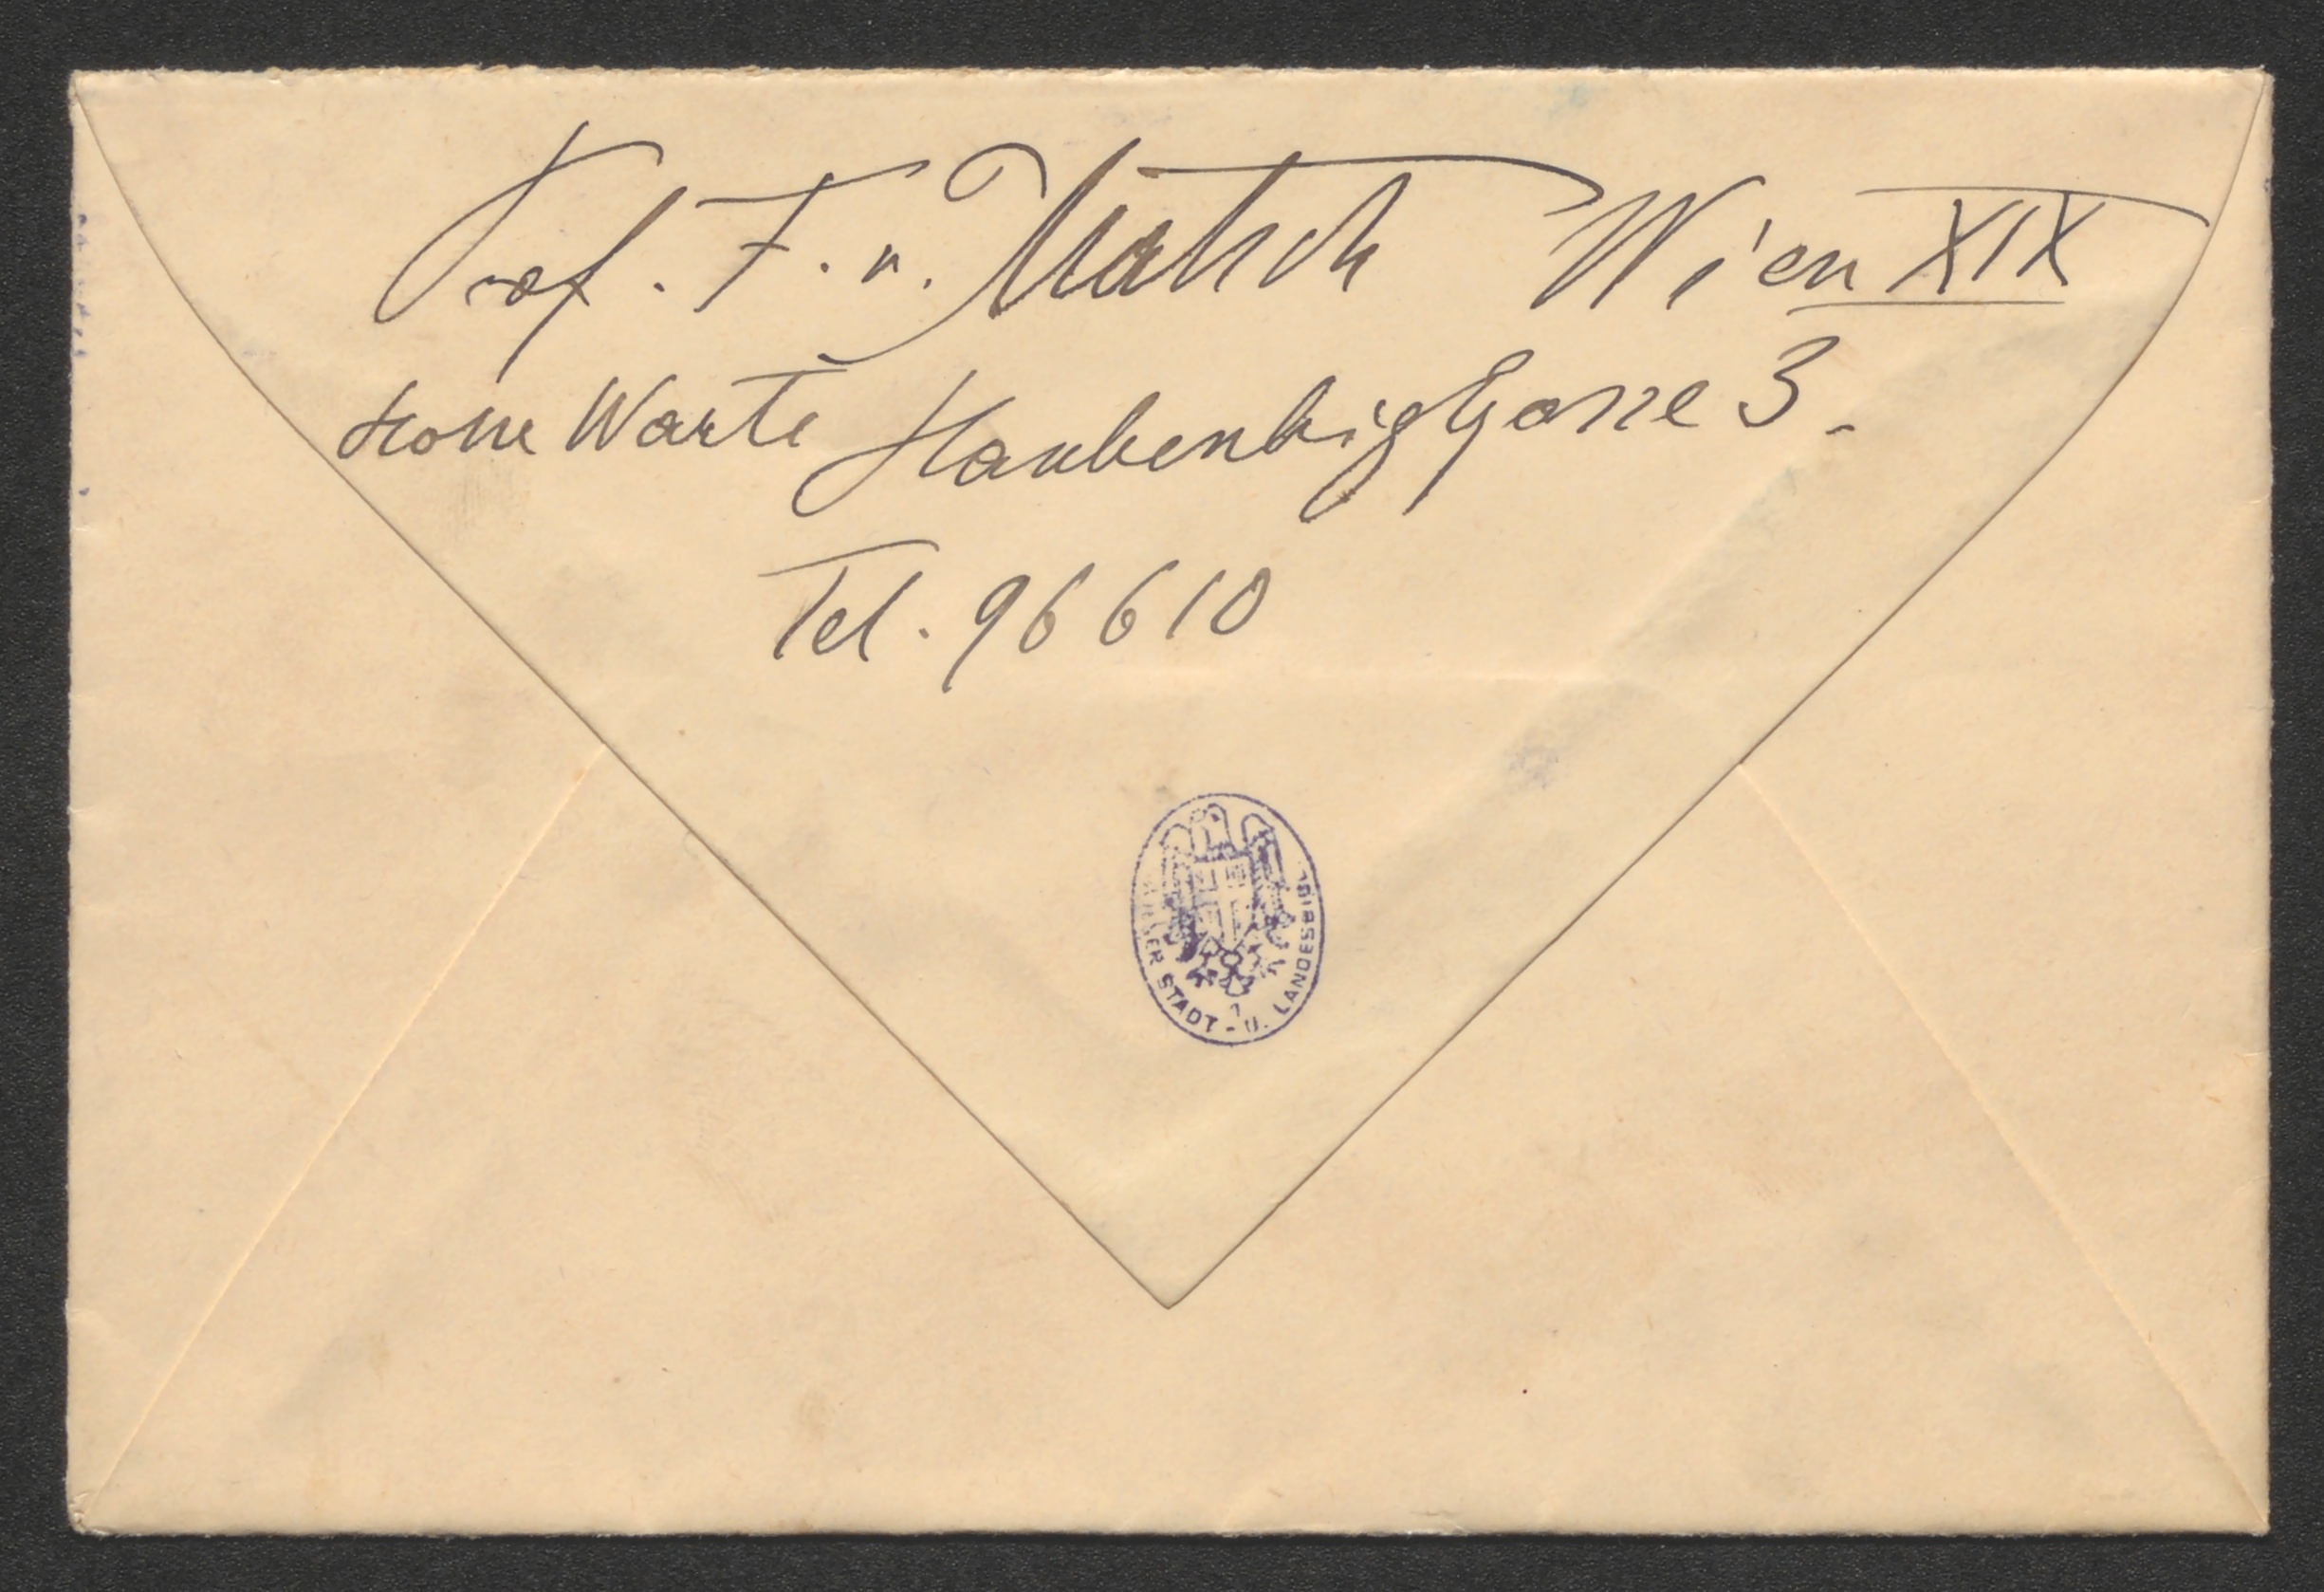 Prof. F. v. Matsch Wien XIX
Hohe Warte Haubenbiglgasse 3.
Tel. 96610
WIENER STADT - U. LANDESBIBL.